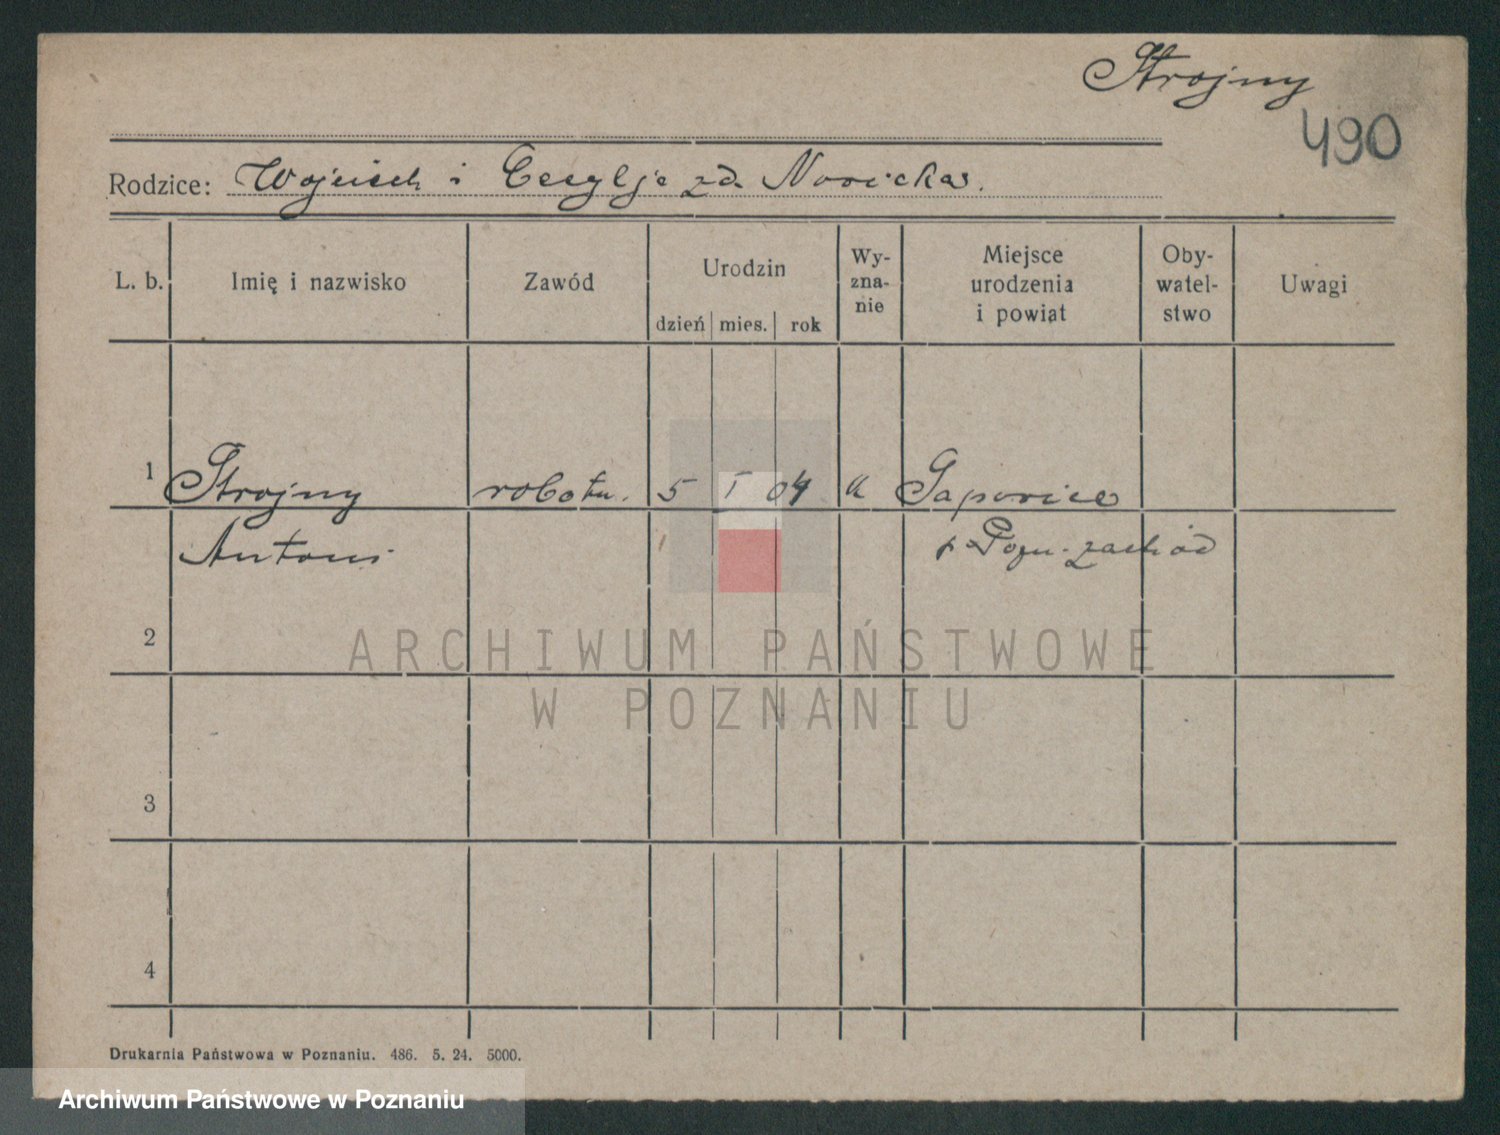 Strojny
490
Rodzice: Wojciech i Cecylje zd. Nowickas.
L. b. Imię i nazwisko Zawód Urodzin Wy-zna-nie Miejsce urodzenia i powiat Oby-watel-stwo Uwagi
dzień mies. rok
1 Strojny robotn. 5 I 04 k Gaporice
Antoni p Pozn. zachód
2
ARCHIWUM PAŃSTWOWE
W POZNANIU
3
4
Drukarnia Państwowa w Poznaniu. 486. 5. 24. 5000.
Archiwum Państwowe w Poznaniu